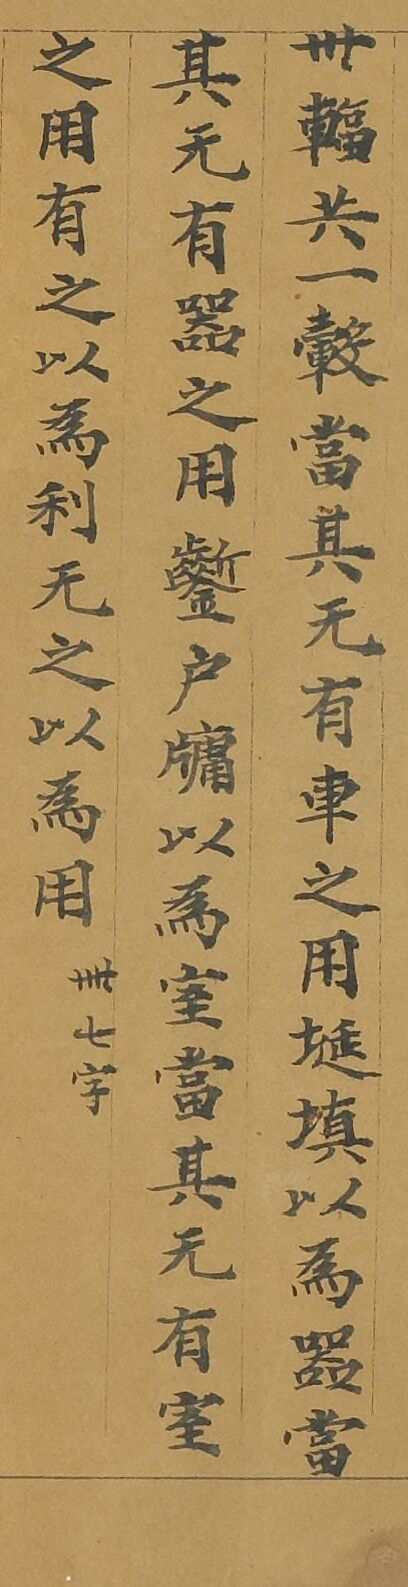 卅輻共一轂當其无有車之用埏填以為器當
其无有器之用鑿户牖以為室當其无有室
之用有之以為利无之以為用 卌七字